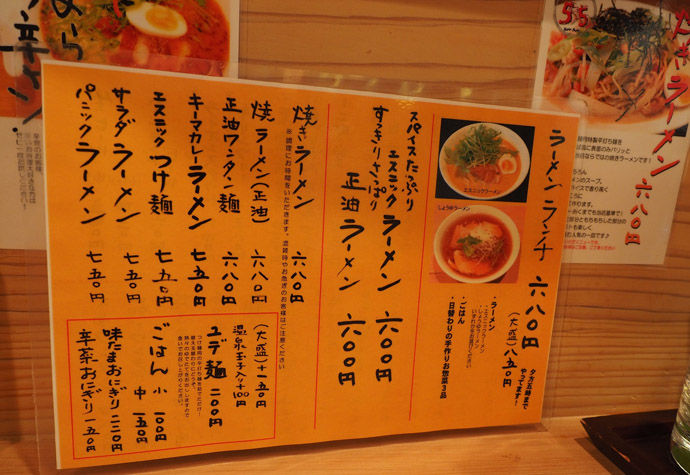 ラーメンランチ 六八〇円
(大盛) 八五〇円
夕方五時まで
やってます!
エスニックラーメン
しょうゆラーメン
・ラーメン
エスニックラーメン
しょうゆラーメン
・ごはん
・日替わりの手作りお惣菜3品
スパイスたっぷり
エスニックラーメン 六〇〇円
すっきりさっぱり
正油ラーメン 六〇〇円
焼きラーメン 六八〇円
※調理にお時間をいただきます。混雑時やお急ぎのお客様はご注意ください
焼ラーメン(正油) 六八〇円
正油ワンタン麺 六八〇円
キーマカレーラーメン 七五〇円
エスニックつけ麺 七五〇円
サラダラーメン 七五〇円
パニックラーメン 七五〇円
(大盛) +一五〇円
温泉玉子入り +100円
ユデ麺 二〇〇円
ごはん 小 一〇〇円
中 一五〇円
味たまおにぎり 二二〇円
辛菜おにぎり 一五〇円
焼きラーメン 六八〇円